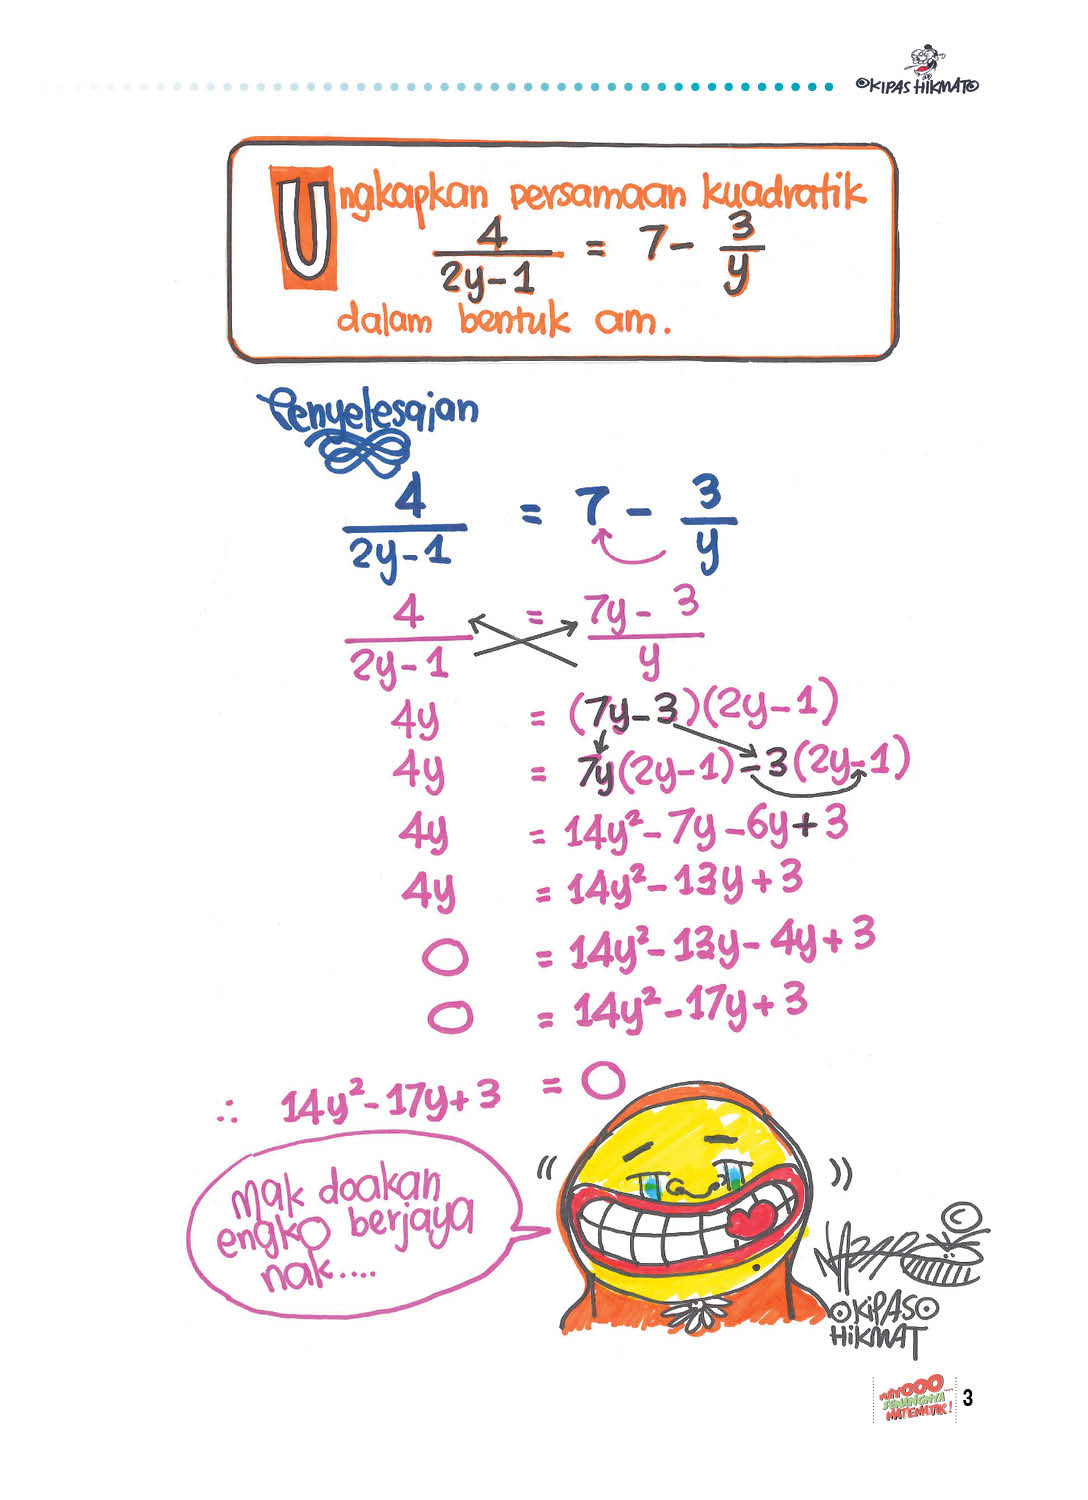 KIPAS HIKMAT
Ungkapkan persamaan kuadratik
4/(2y-1) = 7 - 3/y
dalam bentuk am.
Penyelesaian
4/(2y-1) = 7 - 3/y
4/(2y-1) = (7y - 3)/y
4y = (7y-3)(2y-1)
4y = 7y(2y-1)-3(2y-1)
4y = 14y²-7y-6y+3
4y = 14y²-13y+3
0 = 14y²-13y-4y+3
0 = 14y²-17y+3
∴ 14y²-17y+3 = 0
mak doakan
engko berjaya
nak....
©
KiPAS
HiKMAT
SENANGNYA
MATEMATIK!
3